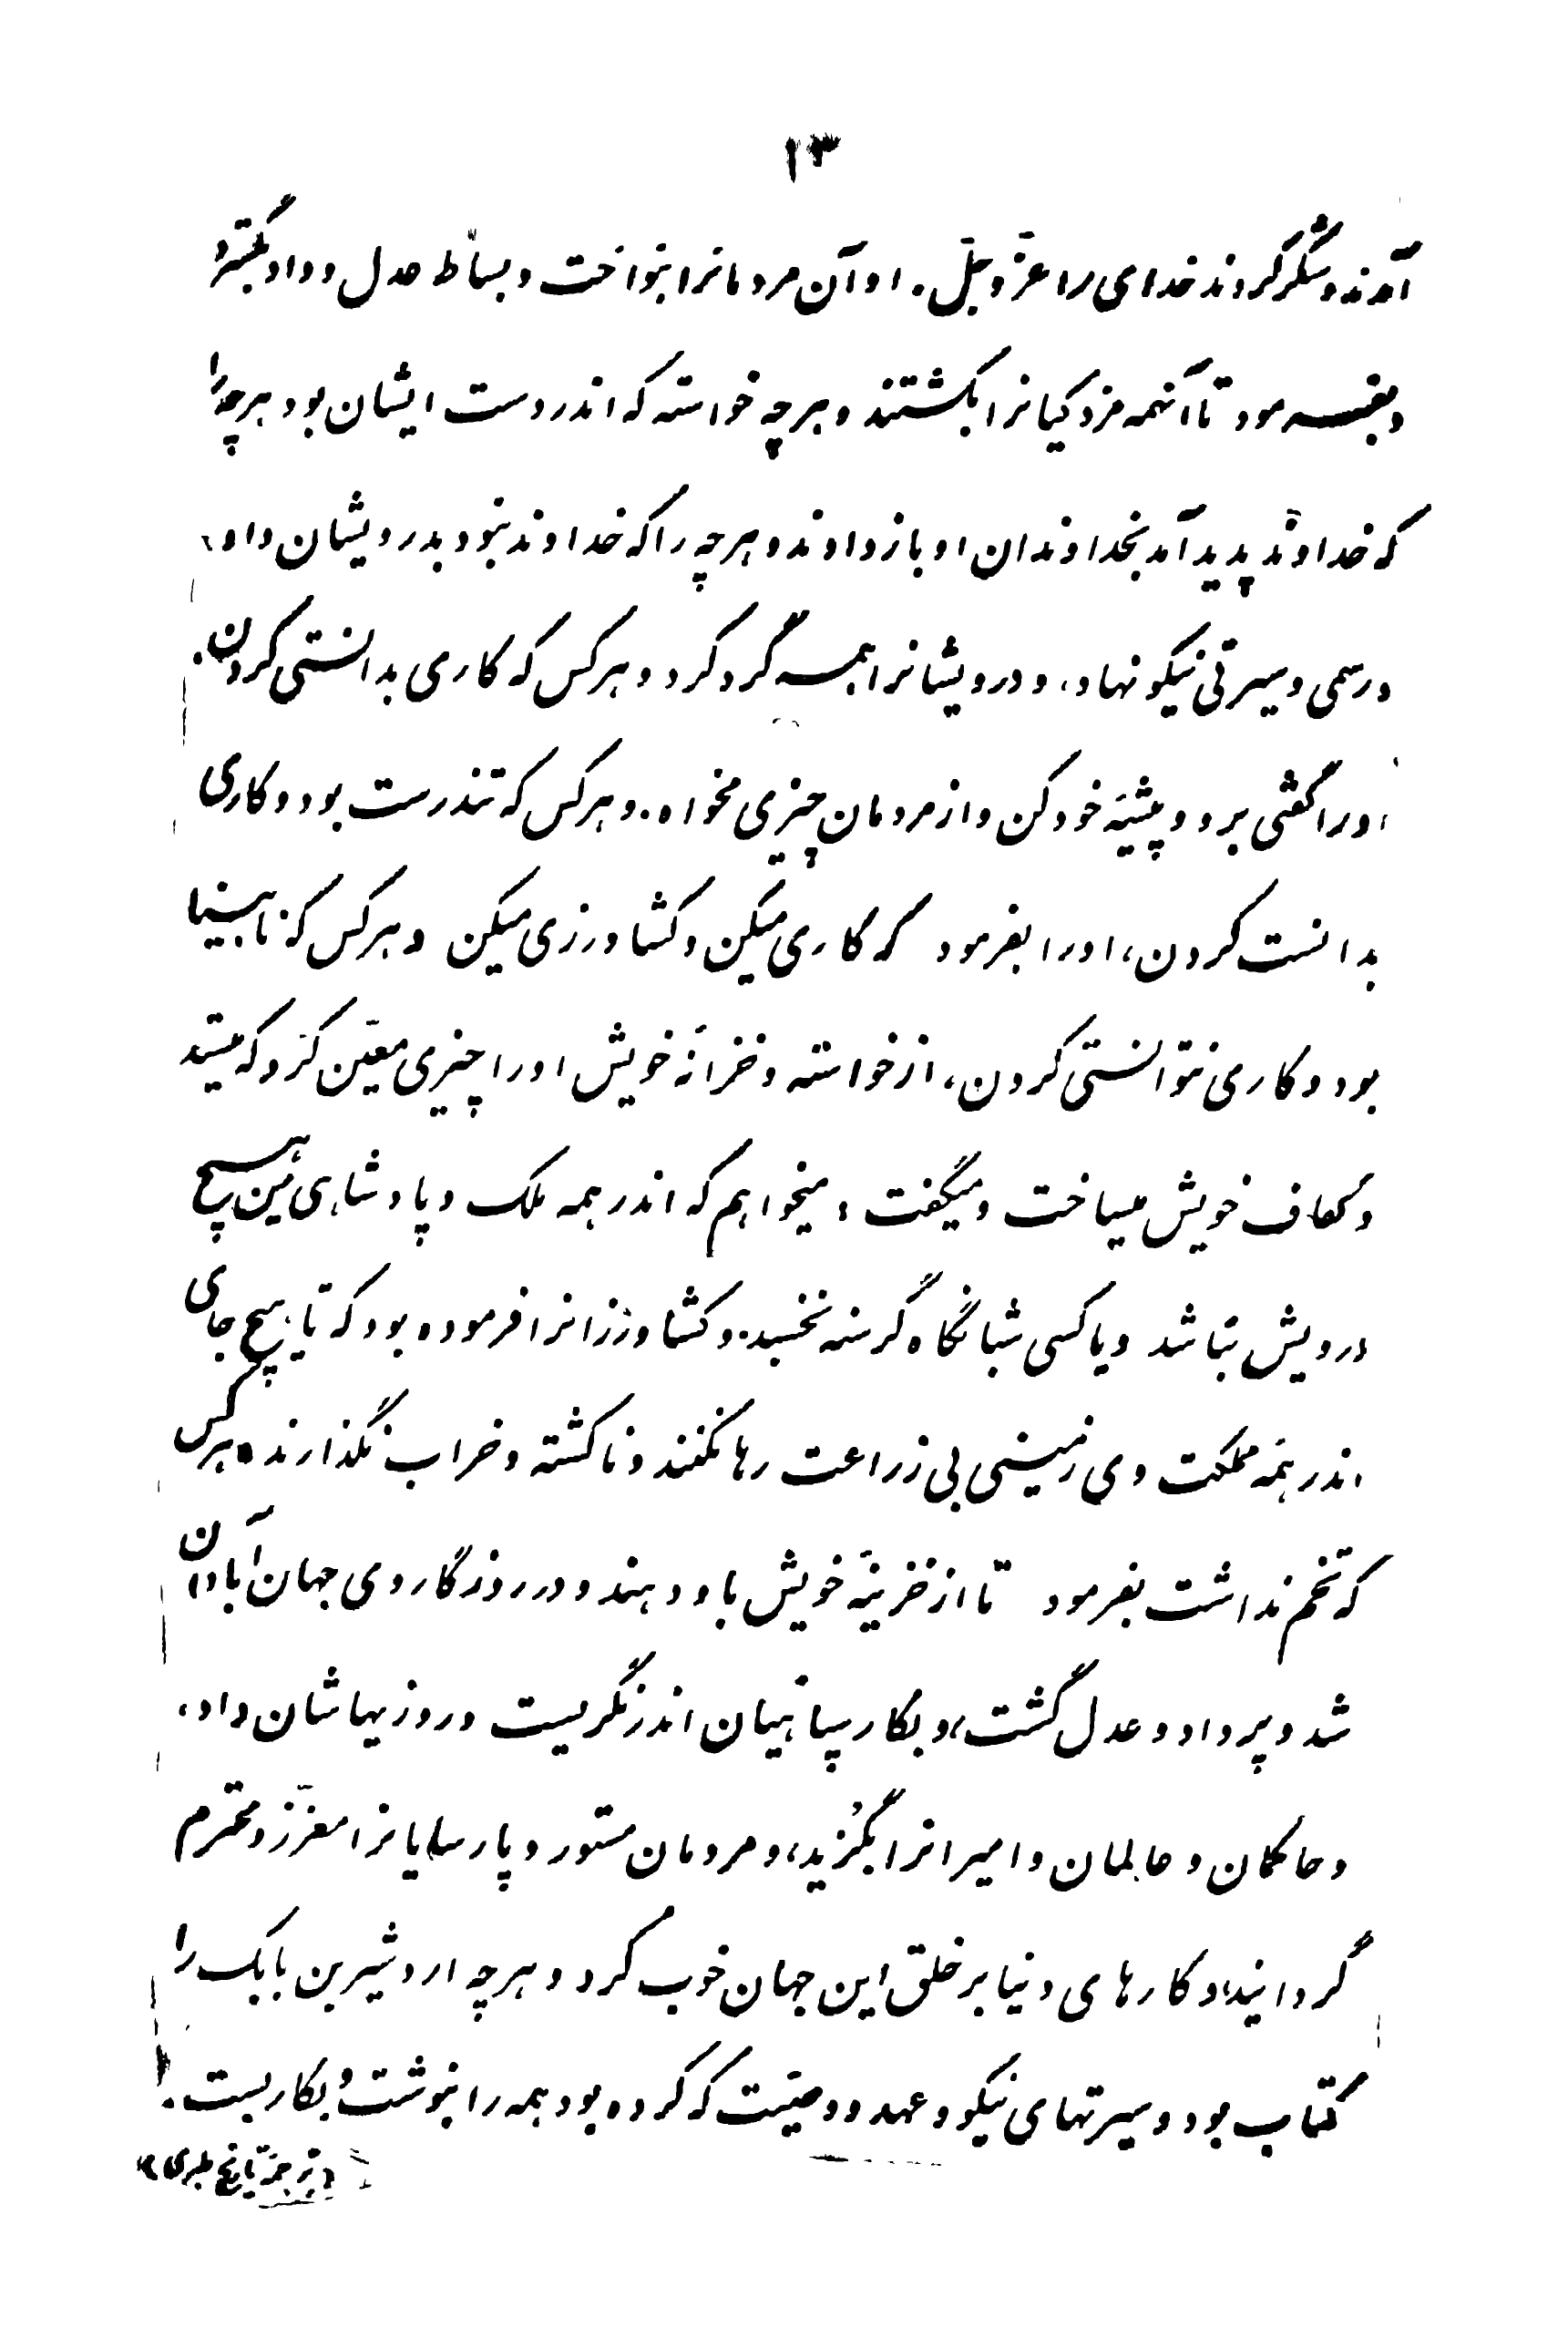 ۱۳
آمدند و شکر کردند خدای را عزّ و جلّ. او آن مردمانرا بنواخت و بساط عدل و داد بگسترد
و بفرمود تا آنهمه مزدکیانرا بکشتند و هرچه خواسته که اندر دست ایشان بود هرچه را
که خداوند پدید آمد بخداوندان او باز دادند و هرچه را که خداوند نبود بدرویشان داد،
ورسمی و سیرتی نیکو نهاد، و درویشانرا همه گرد کرد و هرکس که کاری بدانستی کردن.
اورا گفتی برو و پیشۀ خود کن و از مردمان چیزی مخواه. و هرکس که تندرست بود و کاری
بدانست کردن، اورا بفرمود که کاری میکن و کشاورزی میکن و هرکس که نابینا
بود و کاری نتوانستی کردن، از خواسته و خزانۀ خویش اورا چیزی معیّن کرد که میستد
و کفاف خویش میساخت و میگفت: میخواهم که اندر همه ملک و پادشاهی من هیچ
درویش نباشد و یا کسی شبانگاه گرسنه نخسبد. و کشاورزانرا فرموده بود که تا بهیچ جای
اندر همۀ مملکت وی زمینی بی زراعت رها نکنند و ناکشته و خراب نگذارند و هرکس
که تخم نداشت بفرمود تا از خزینۀ خویش باو دهند و در روزگار وی جهان آبادان
شد و پر داد و عدل گشت، و بکار سپاهیان اندر نگریست و روزیهاشان داد،
و حاکمان و عالمان و امیرانرا بگزید، و مردمان مستور و پارسایانرا معزّز و محترم
گردانید، و کارهای دنیا بر خلق این جهان خوب کرد و هرچه اردشیر بن بابک را
کتاب بود و سیرتهای نیکو و عهد و وصیّت که کرده بود همه را بنوشت و بکار بست.
«ترجمۀ تاریخ طبری»